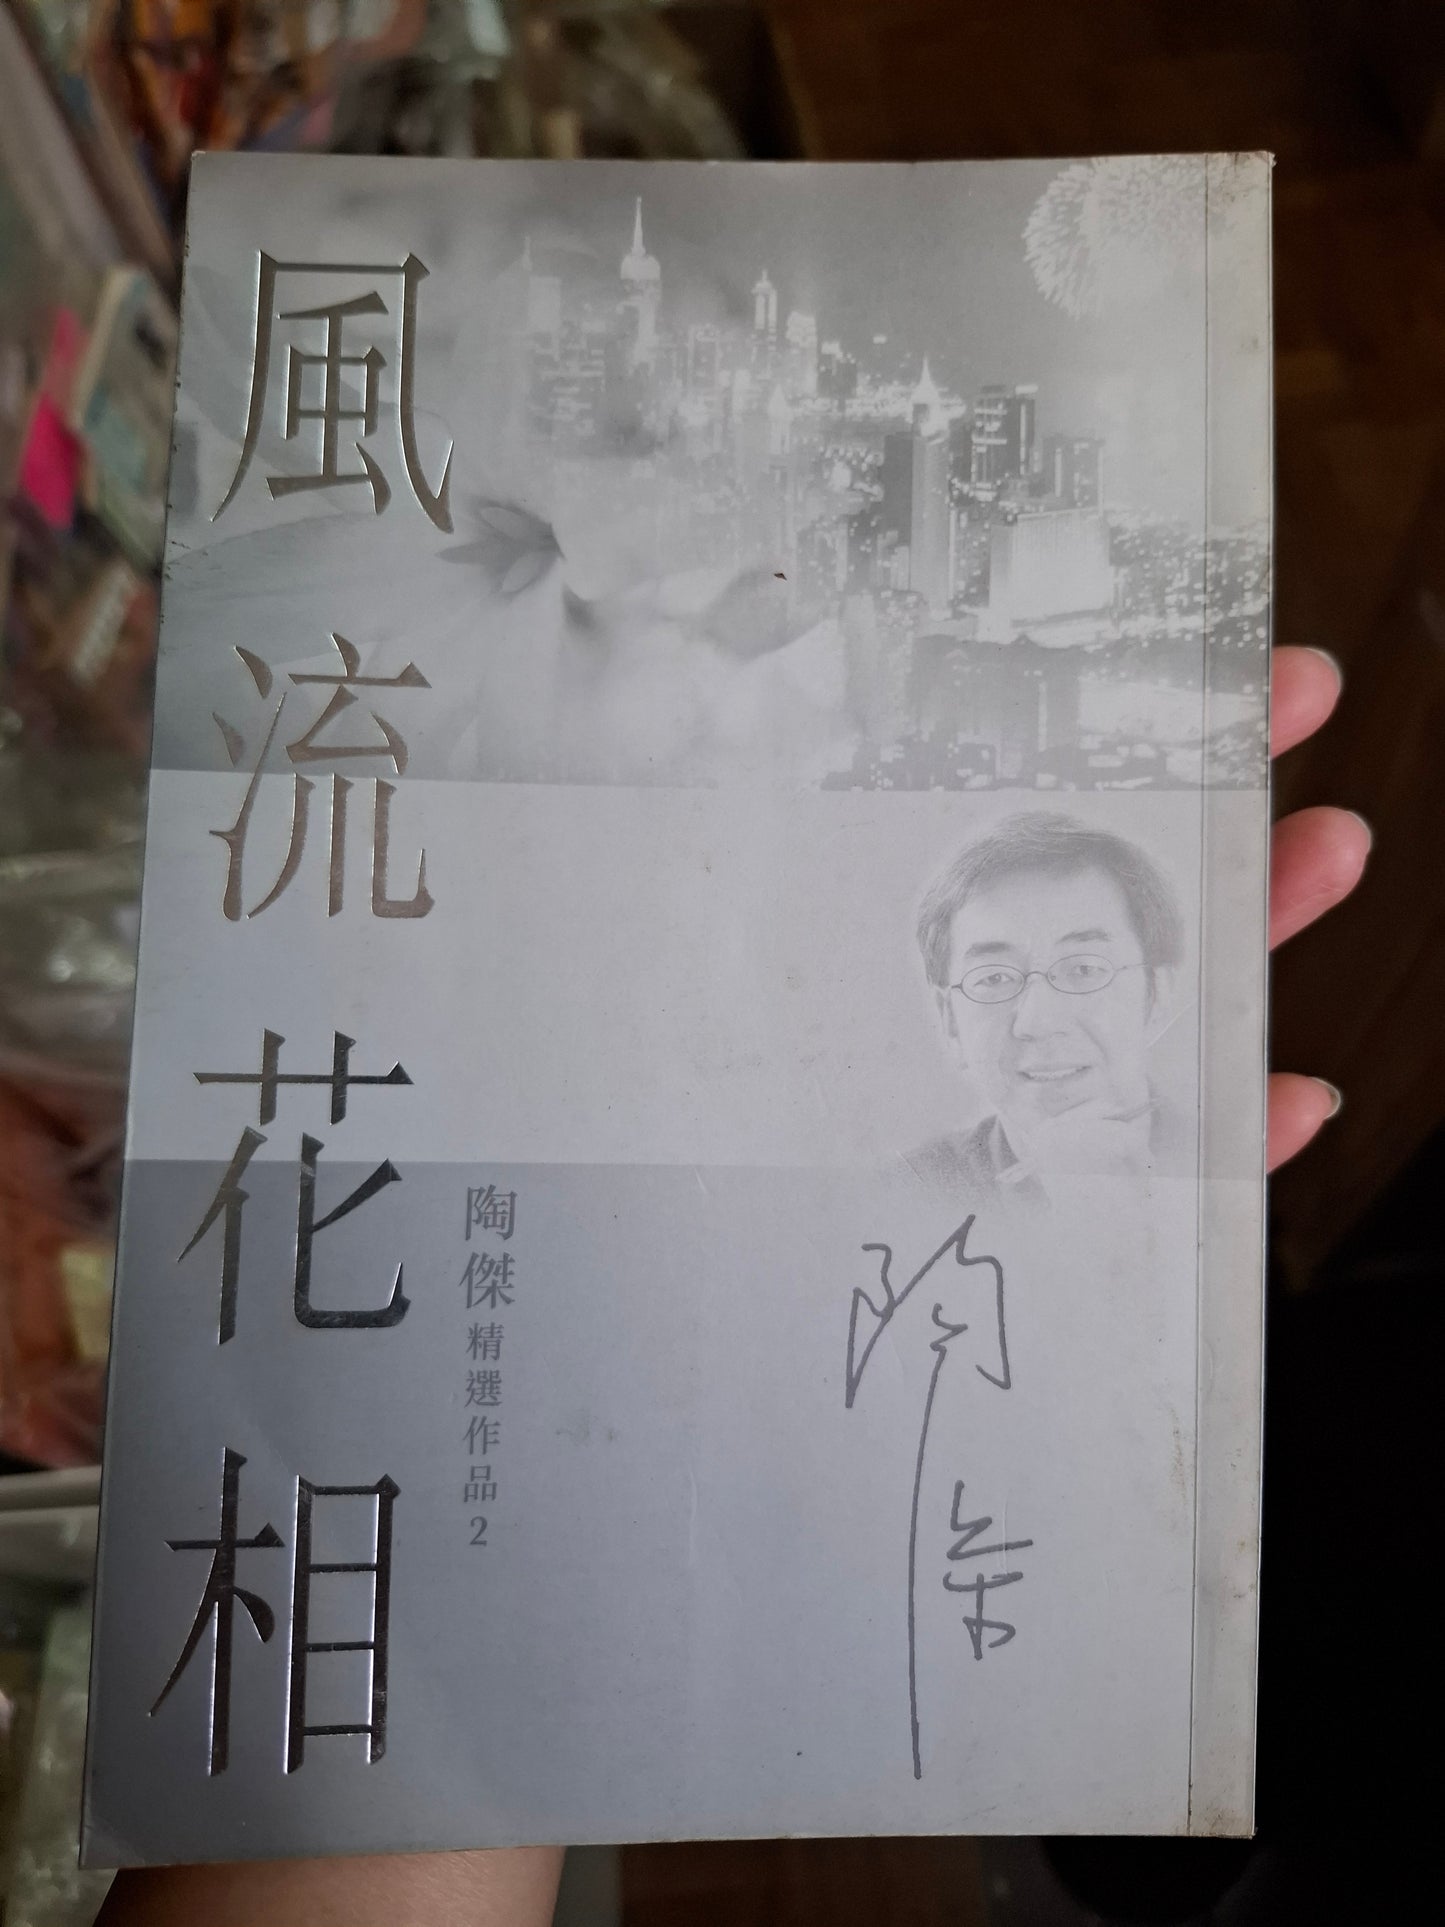 風流花相
陶傑精選作品2
陶杰